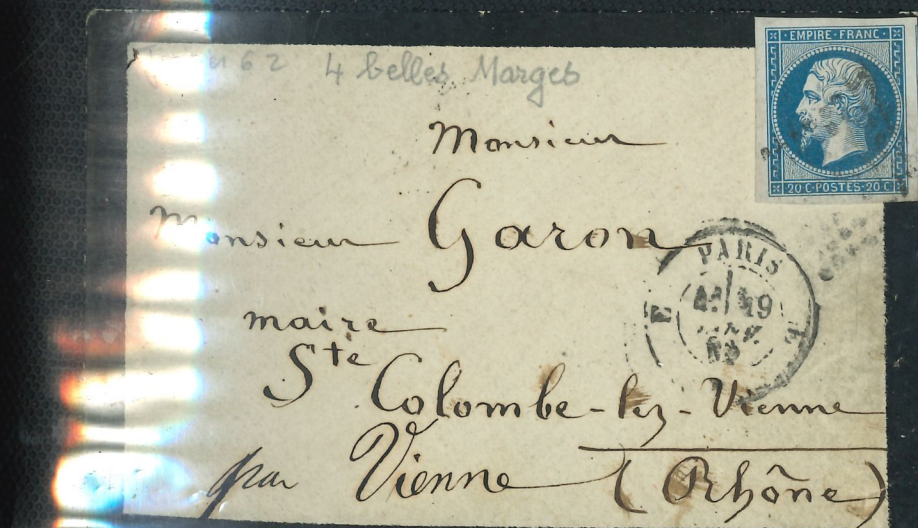 62 4 belles Marges
EMPIRE FRANC
20 C·POSTES·20 C
Monsieur
Monsieur Garon
PARIS
19
E E
maire
Ste Colombe-lez-Vienne
par Vienne (Rhône)